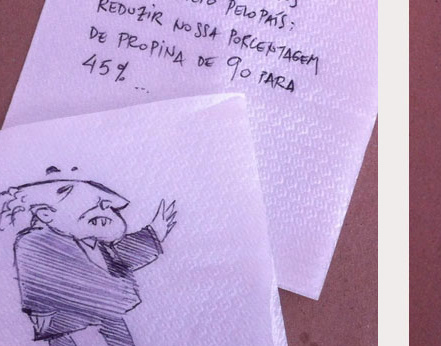 PELO PAÍS:
REDUZIR NOSSA PORCENTAGEM
DE PROPINA DE 90 PARA
45% ...